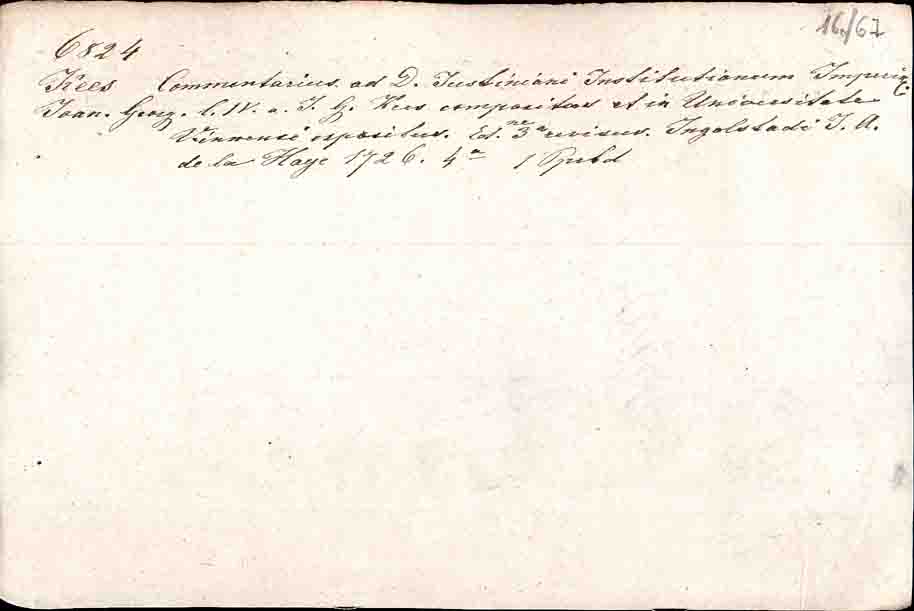 16/67
6824
Kees Commentarius ad D. Justiniani Institutionum Imperii
Joan. Georg. l. IV. a. J. G. Kees compositus et in Universitate
Viennensi expositus. Ed.ne 3a revisus. Ingolstadi J. A.
de la Haye 1726. 4o 1 Ppbd